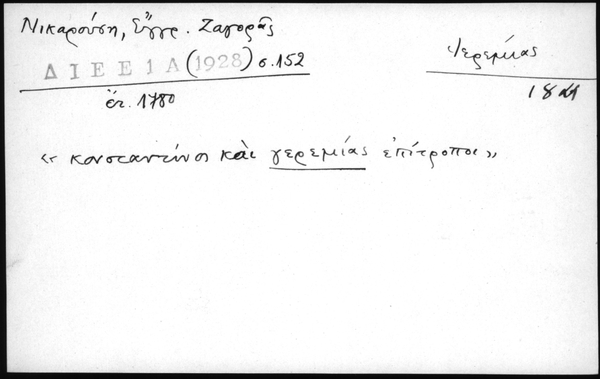 Νικαρούση, Ἔγγρ. Ζαγορᾶς
ΔΙΕΕ 1Α (1928) σ. 152
ἔτ. 1780
Ἱερεμίας
18
« κονσταντίνοσ και γερεμίας ἐπίτροποι »